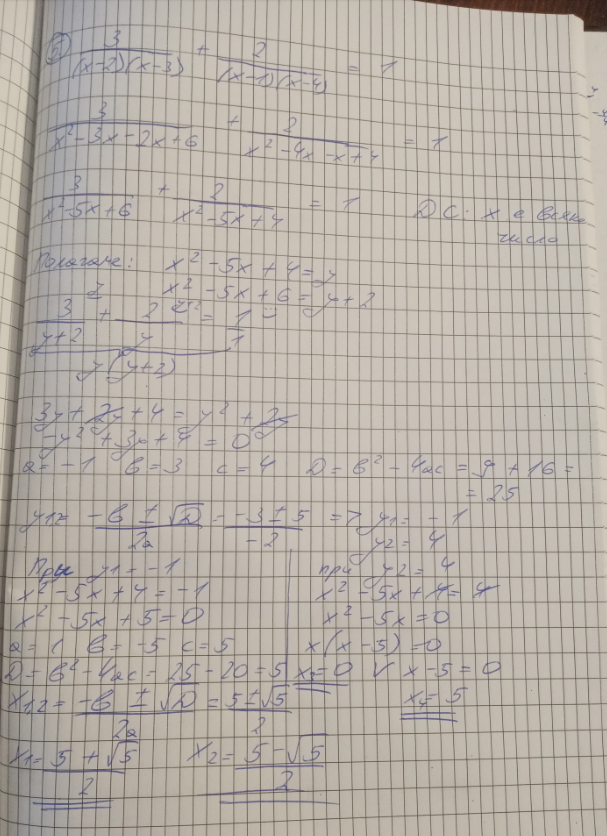 6) 3/((x-2)(x-3)) + 2/((x-1)(x-4)) = 1
3/(x²-3x-2x+6) + 2/(x²-4x-x+4) = 1
3/(x²-5x+6) + 2/(x²-5x+4) = 1 ДС: x е всяко
число
Полагаме: x²-5x+4=y
x²-5x+6=y+2
3/(y+2) + 2/y = 1/1
y(y+2)
3y+2y+4=y²+2y
-y²+3y+4=0
a=-1 b=3 c=4 D=b²-4ac=9+16=
=25
y1,2= (-b±√D)/2a = (-3±5)/-2 => y1=-1
y2=4
При y1=-1
x²-5x+4=-1
x²-5x+5=0
a=1 b=-5 c=5
D=b²-4ac=25-20=5
x1,2= (-b±√D)/2a = (5±√5)/2
x1= (5+√5)/2 x2= (5-√5)/2
при y2=4
x²-5x+4=4
x²-5x=0
x(x-5)=0
x3=0 V x-5=0
x4=5